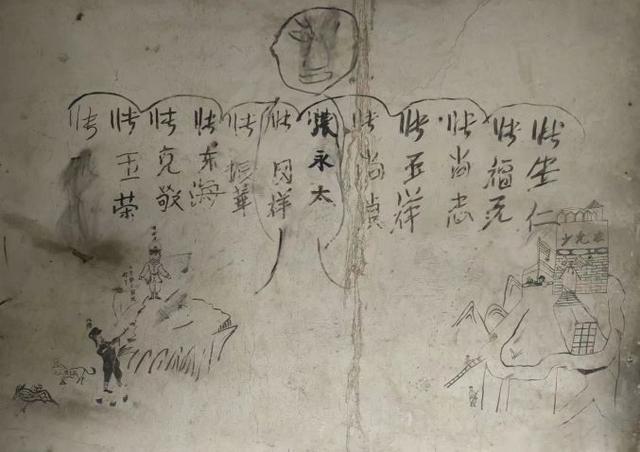 张生仁
张福元
张尚志
张玉祥
张尚貞
張永太
张同祥
张振華
张东海
张克敬
张玉荣
张